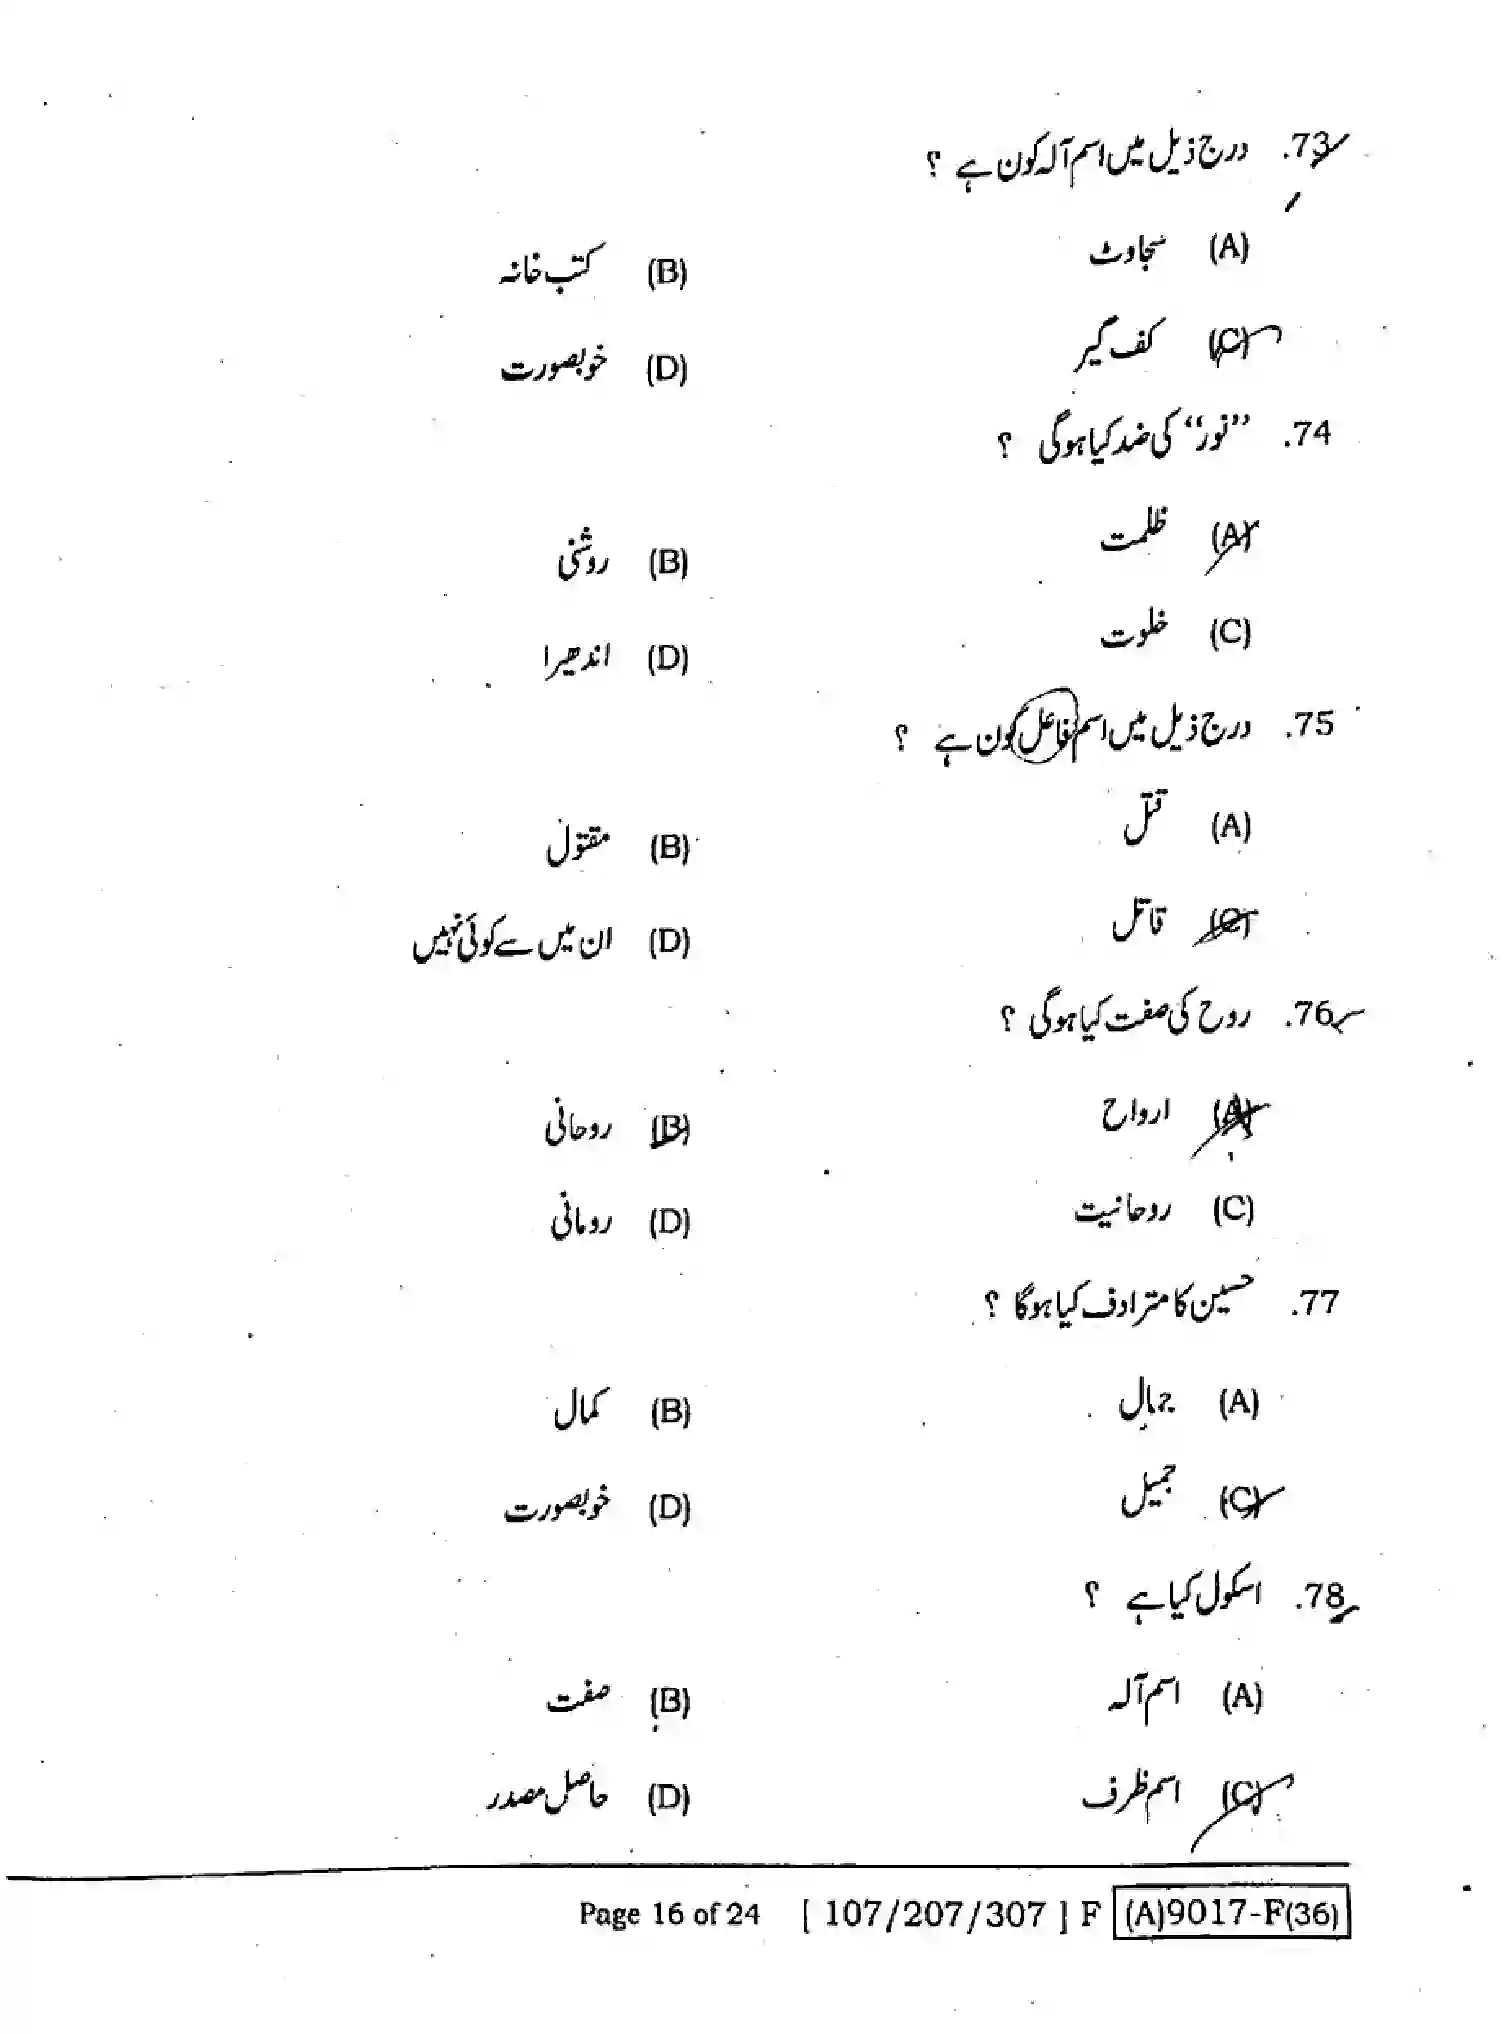 73. درج ذیل میں اسم آلہ کون ہے ؟
(A) سجاوٹ (B) کتب خانہ
(C) کف گیر (D) خوبصورت
74. ”نور“ کی ضد کیا ہوگی ؟
(A) ظلمت (B) روشنی
(C) خلوت (D) اندھیرا
75. درج ذیل میں اسم فاعل کون ہے ؟
(A) قتل (B) مقتول
(C) قاتل (D) ان میں سے کوئی نہیں
76. روح کی صفت کیا ہوگی ؟
(A) ارواح (B) روحانی
(C) روحانیت (D) رومانی
77. حسین کا مترادف کیا ہوگا ؟
(A) جمال (B) کمال
(C) جمیل (D) خوبصورت
78. اسکول کیا ہے ؟
(A) اسم آلہ (B) صفت
(C) اسم ظرف (D) حاصل مصدر
Page 16 of 24 [ 107/207/307 ] F (A)9017-F(36)